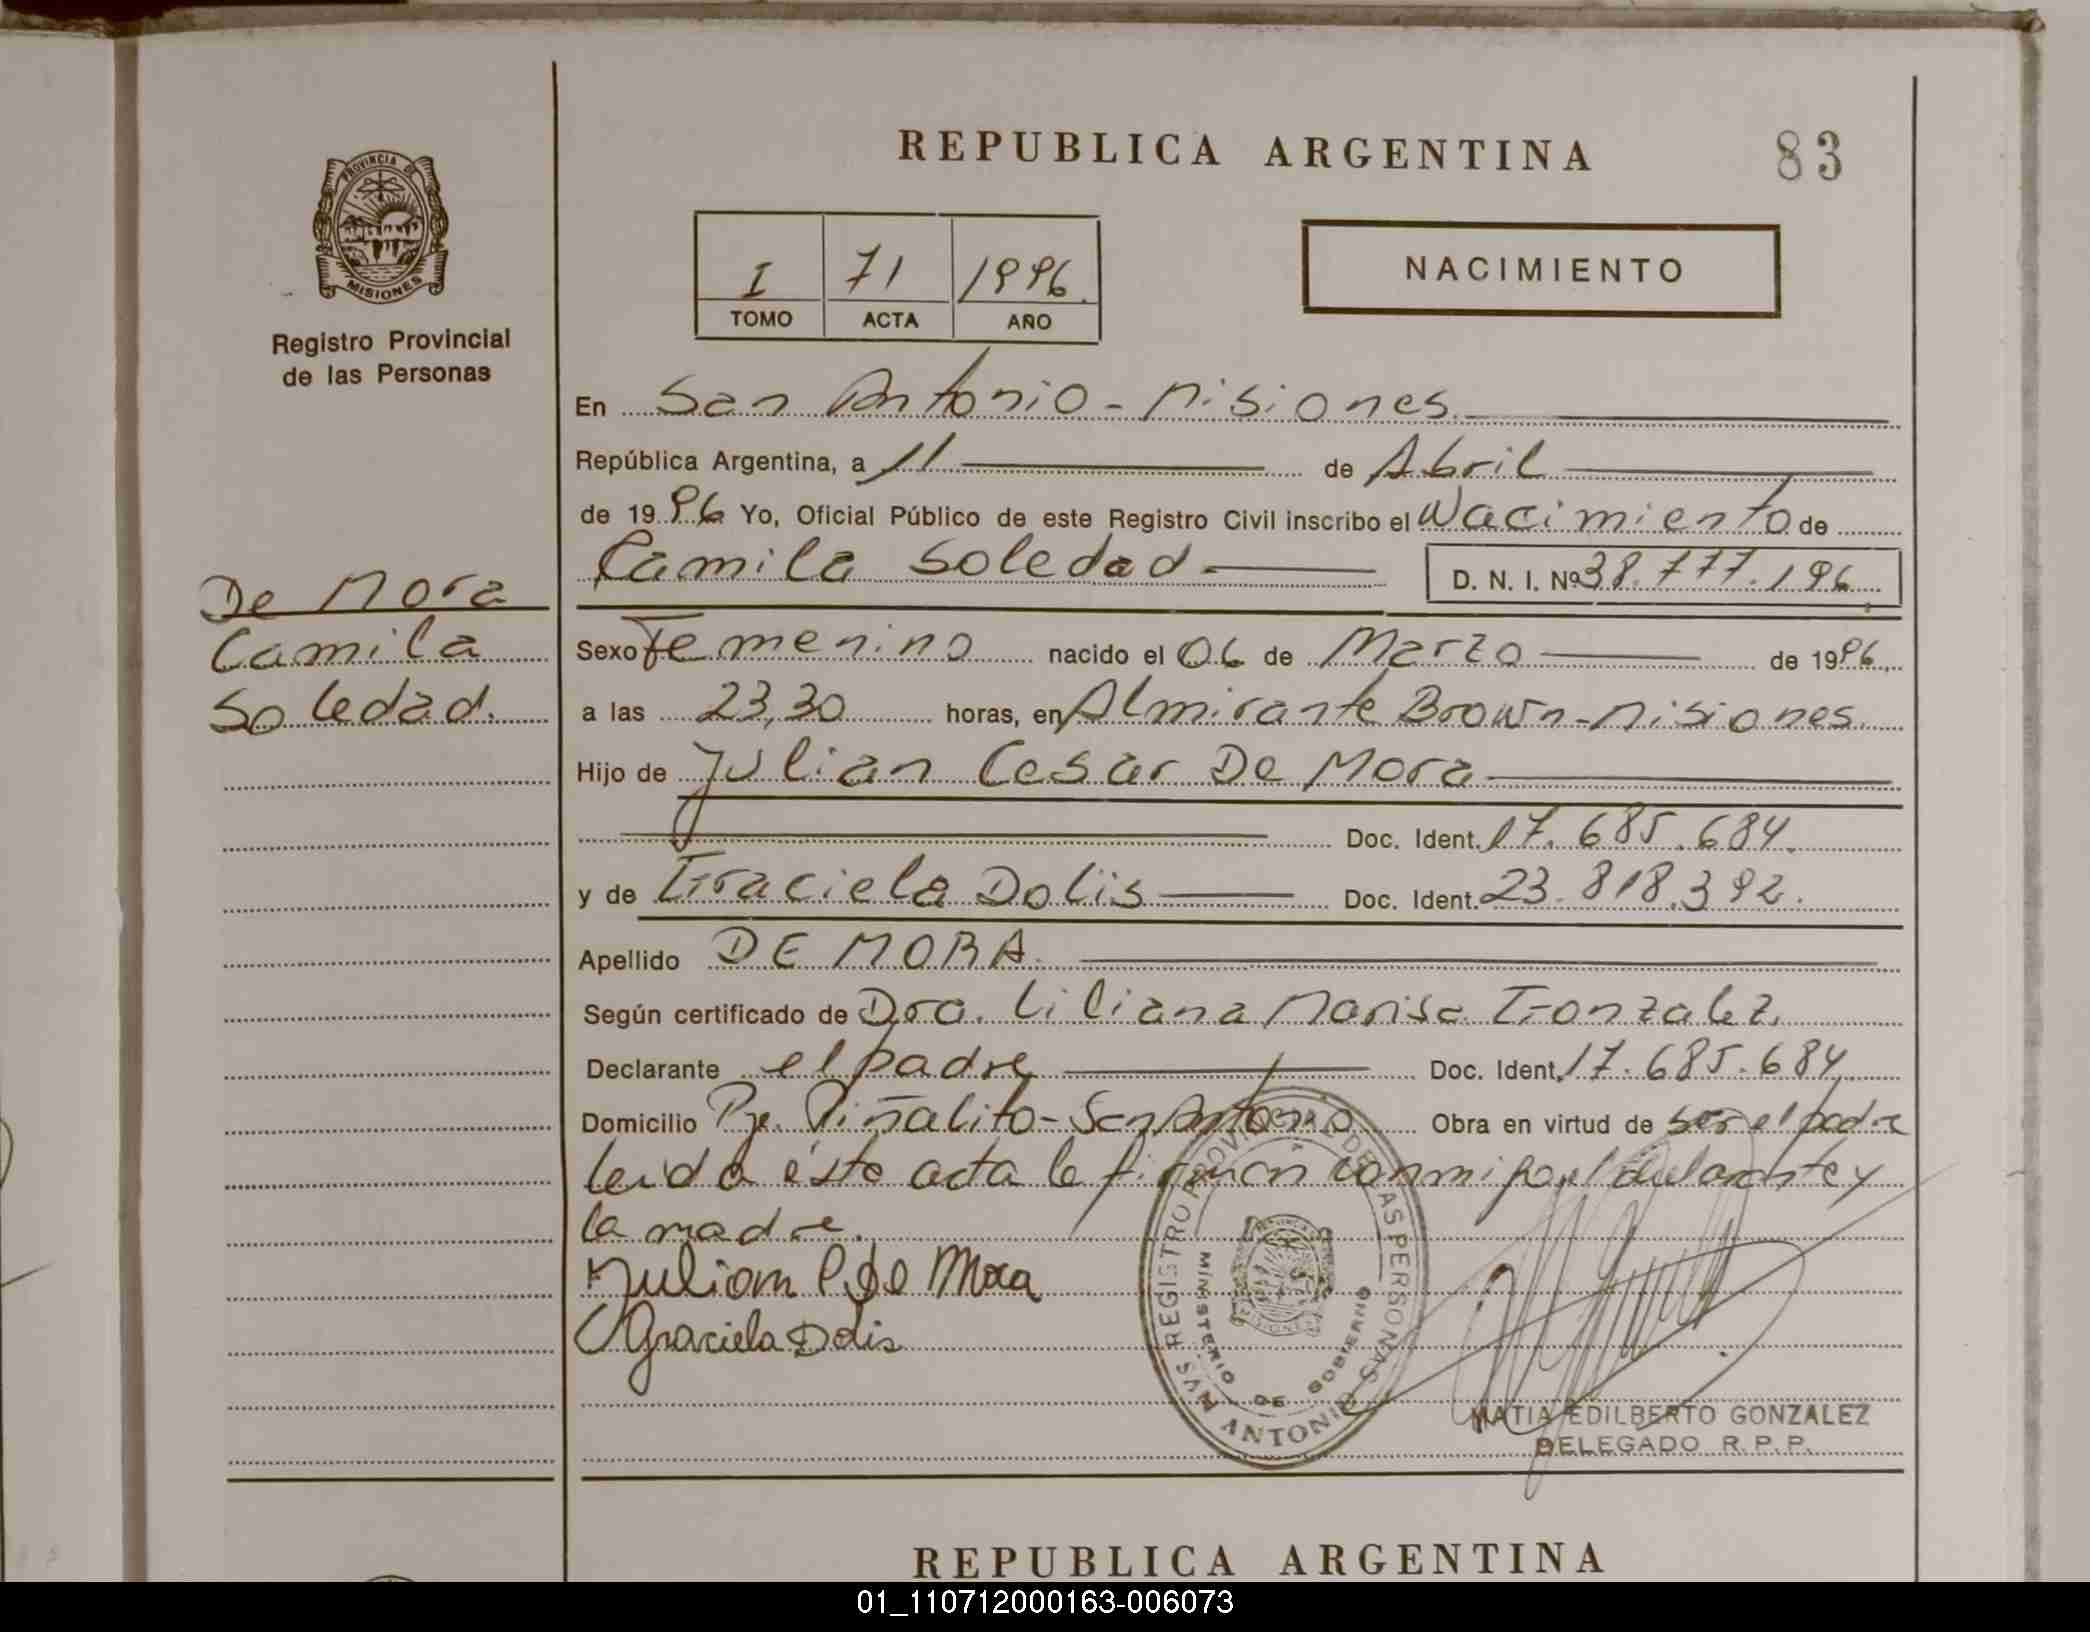 REPUBLICA ARGENTINA
83
PROVINCIA DE
MISIONES
Registro Provincial
de las Personas
I 71 1996
TOMO ACTA AÑO
NACIMIENTO
En San Antonio - Misiones
República Argentina, a 11 de Abril
de 1996 Yo, Oficial Público de este Registro Civil inscribo el Nacimiento de
Camila Soledad D. N. I. Nº 38.777.196
De Mora
Camila
Soledad.
Sexo Femenino nacido el 06 de Marzo de 1996
a las 23,30 horas, en Almirante Brown - Misiones.
Hijo de Julian Cesar De Mora
Doc. Ident. 17.685.684.
y de Graciela Dolis Doc. Ident. 23.818.392.
Apellido DE MORA.
Según certificado de Dra. Liliana Marisa Gonzalez.
Declarante el padre Doc. Ident. 17.685.684
Domicilio Pje. Piñalito - San Antonio Obra en virtud de ser el padre
leida ésta acta la firman conmigo el declarante y
la madre.
Julian C de Mora
Graciela Dolis
REGISTRO PROVINCIAL DE LAS PERSONAS
MINISTERIO DE GOBIERNO
SAN ANTONIO
MATIA EDILBERTO GONZALEZ
DELEGADO R.P.P.
REPUBLICA ARGENTINA
01_110712000163-006073